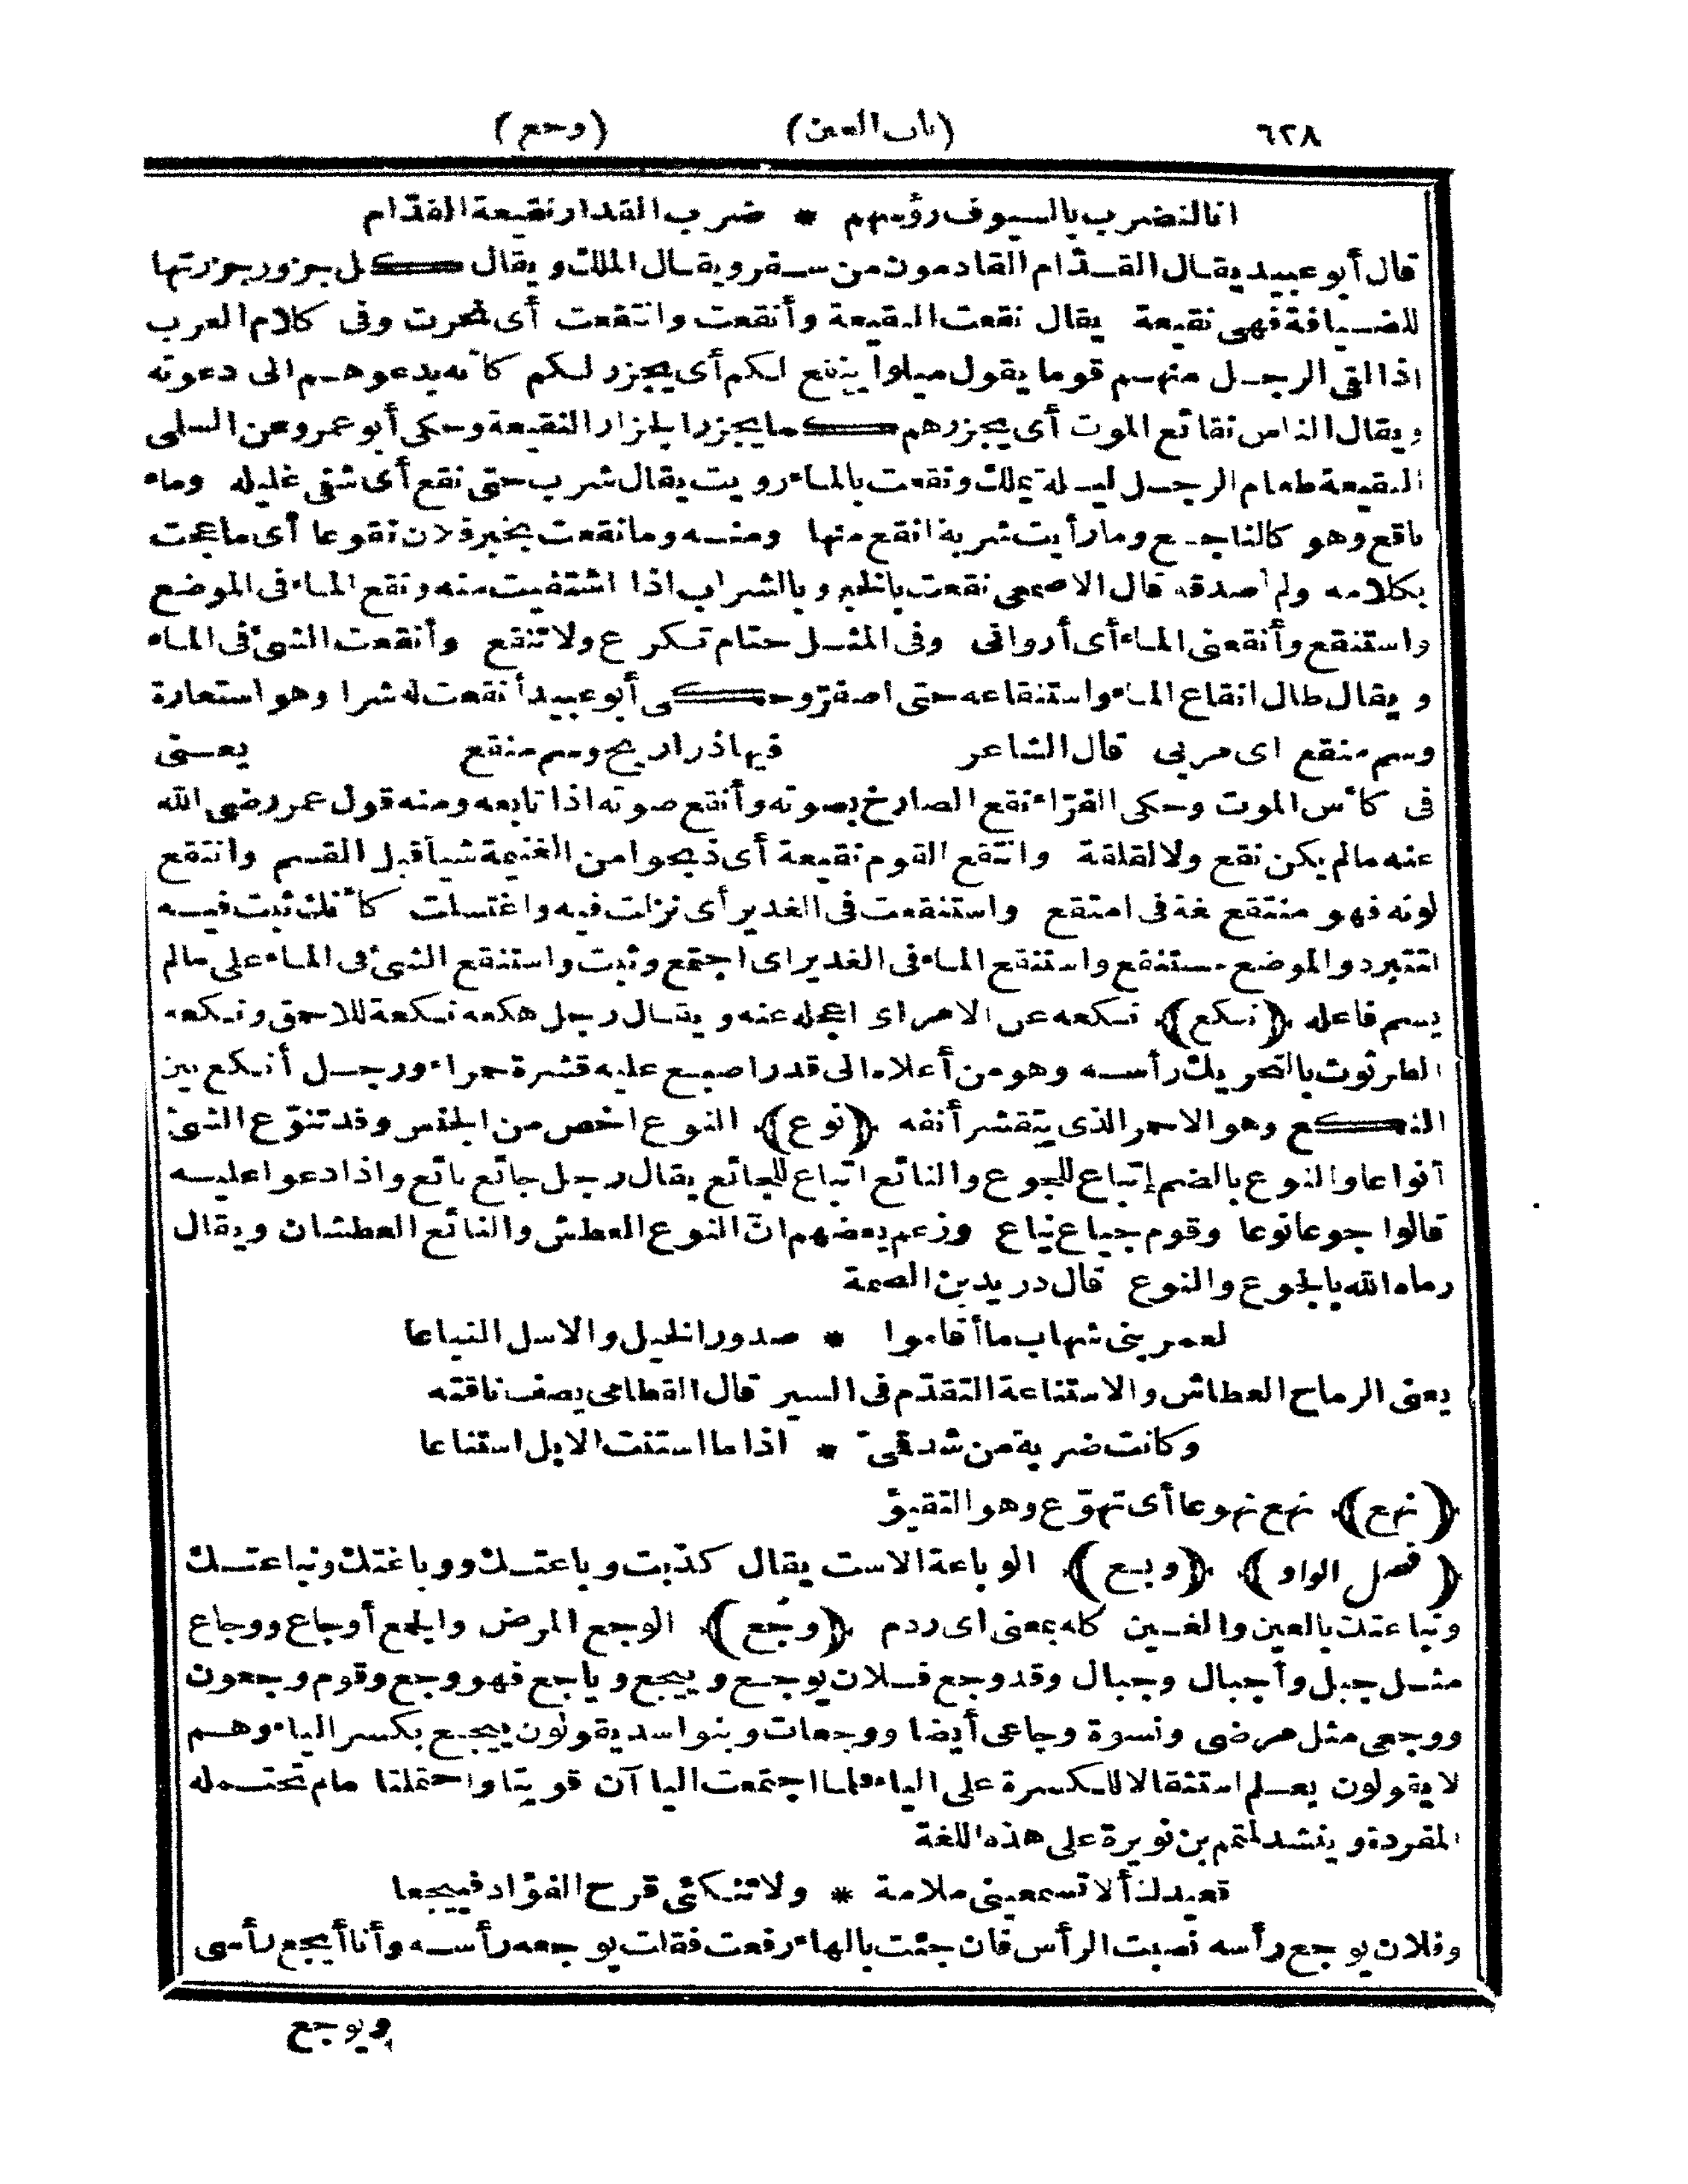 ٦٢٨ (باب العين) (وجع)
انا لنضرب بالسيوف رؤسهم * ضرب القدار نقيعة القدّام
قال أبو عبيد يقال القدّام القادمون من سفر ويقال الملك ويقال كل جزور جزرتها
للضيافة فهى نقيعة يقال نقعت النقيعة وأنقعت وانتقعت أى نحرت وفى كلام العرب
اذا لقى الرجل منهم قوما يقول ميلوا ينقع لكم أى يجزر لكم كأنه يدعوهم الى دعوته
ويقال الناس نقائع الموت أى يجزرهم كما يجزر الجزار النقيعة وحكى أبو عمرو عن السلمى
النقيعة طعام الرجل ليلة يملك ونقعت بالماء رويت يقال شرب حتى نقع أى شفى غليله وماء
ناقع وهو كالناجع وما رأيت شربة انقع منها ومنه وما نقعت بخبر فلان نقوعا أى ما عجت
بكلامه ولم أصدقه قال الاصمعى نقعت بالخبر وبالشراب اذا اشتفيت منه ونقع الماء فى الموضع
واستنقع وأنقعنى الماء أى أروانى وفى المثل حتام تكرع ولا تنقع وأنقعت الشئ فى الماء
ويقال طال انقاع الماء واستنقاعه حتى اصفرّ وحكى أبو عبيد أنقعت له شرا وهو استعارة
وسم منقع اى مربى قال الشاعر فيها ذراريح وسم منقع يعنى
فى كأس الموت وحكى الفرّاء نقع الصارخ بصوته وأنقع صوته اذا تابعه ومنه قول عمر رضى الله
عنه ما لم يكن نقع ولا لقلقة وانتقع القوم نقيعة أى ذبحوا من الغنيمة شيأ قبل القسم وانتقع
لونه فهو منتقع لغة فى امتقع واستنقعت فى الغدير أى نزلت فيه واغتسلت كأنك ثبت فيه
لتتبرد والموضع مستنقع واستنقع الماء فى الغدير اى اجتمع وثبت واستنقع الشئ فى الماء على ما لم
يسم فاعله ﴿نكع﴾ نكعه عن الامر اى اعجله عنه ويقال رجل هكعة نكعة للاحمق ونكعة
الطرثوث بالتحريك رأسه وهو من أعلاه الى قدر اصبع عليه قشرة حمراء ورجل أنكع بين
النكع وهو الاحمر الذى يتقشر أنفه ﴿نوع﴾ النوع اخص من الجنس وقد تنوّع الشئ
أنواعا والنوع بالضم إتباع للجوع والنائع اتباع للجائع يقال رجل جائع نائع واذا دعوا عليه
قالوا جوعا نوعا وقوم جياع نياع وزعم بعضهم انّ النوع العطش والنائع العطشان ويقال
رماه الله بالجوع والنوع قال دريد بن الصمة
لعمر بنى شهاب ما أقاموا * صدور الخيل والاسل النياعا
يعنى الرماح العطاش والاستناعة التقدّم فى السير قال القطامى يصف ناقته
وكانت ضربة من شدقمىّ * اذا ما استنت الابل استناعا
﴿نهع﴾ نهع نهوعا أى تهوّع وهو التقيؤ
﴿فصل الواو﴾ ﴿وبع﴾ الوباعة الاست يقال كذبت وباعتك ووباغتك ونباعتك
ونباغتك بالعين والغين كله بمعنى اى ردم ﴿وجع﴾ الوجع المرض والجمع أوجاع ووجاع
مثل جبل وأجبال وجبال وقد وجع فلان يوجع وييجع وياجع فهو وجع وقوم وجعون
ووجعى مثل مرضى ونسوة وجاعى أيضا ووجعات وبنو اسد يقولون ييجع بكسر الياء وهم
لا يقولون يعلم استثقالا للكسرة على الياء فلما اجتمعت اليا آن قويتا واحتملتا ما لم تحتمله
المفردة وينشد لمتمم بن نويرة على هذه اللغة
قعيدك أن لا تسمعينى ملامة * ولا تنكئى قرح الفؤاد فييجعا
وفلان يوجع رأسه نصبت الرأس فان جئت بالهاء رفعت فقلت يوجعه رأسه وأنا أيجع رأسى
ويوجع